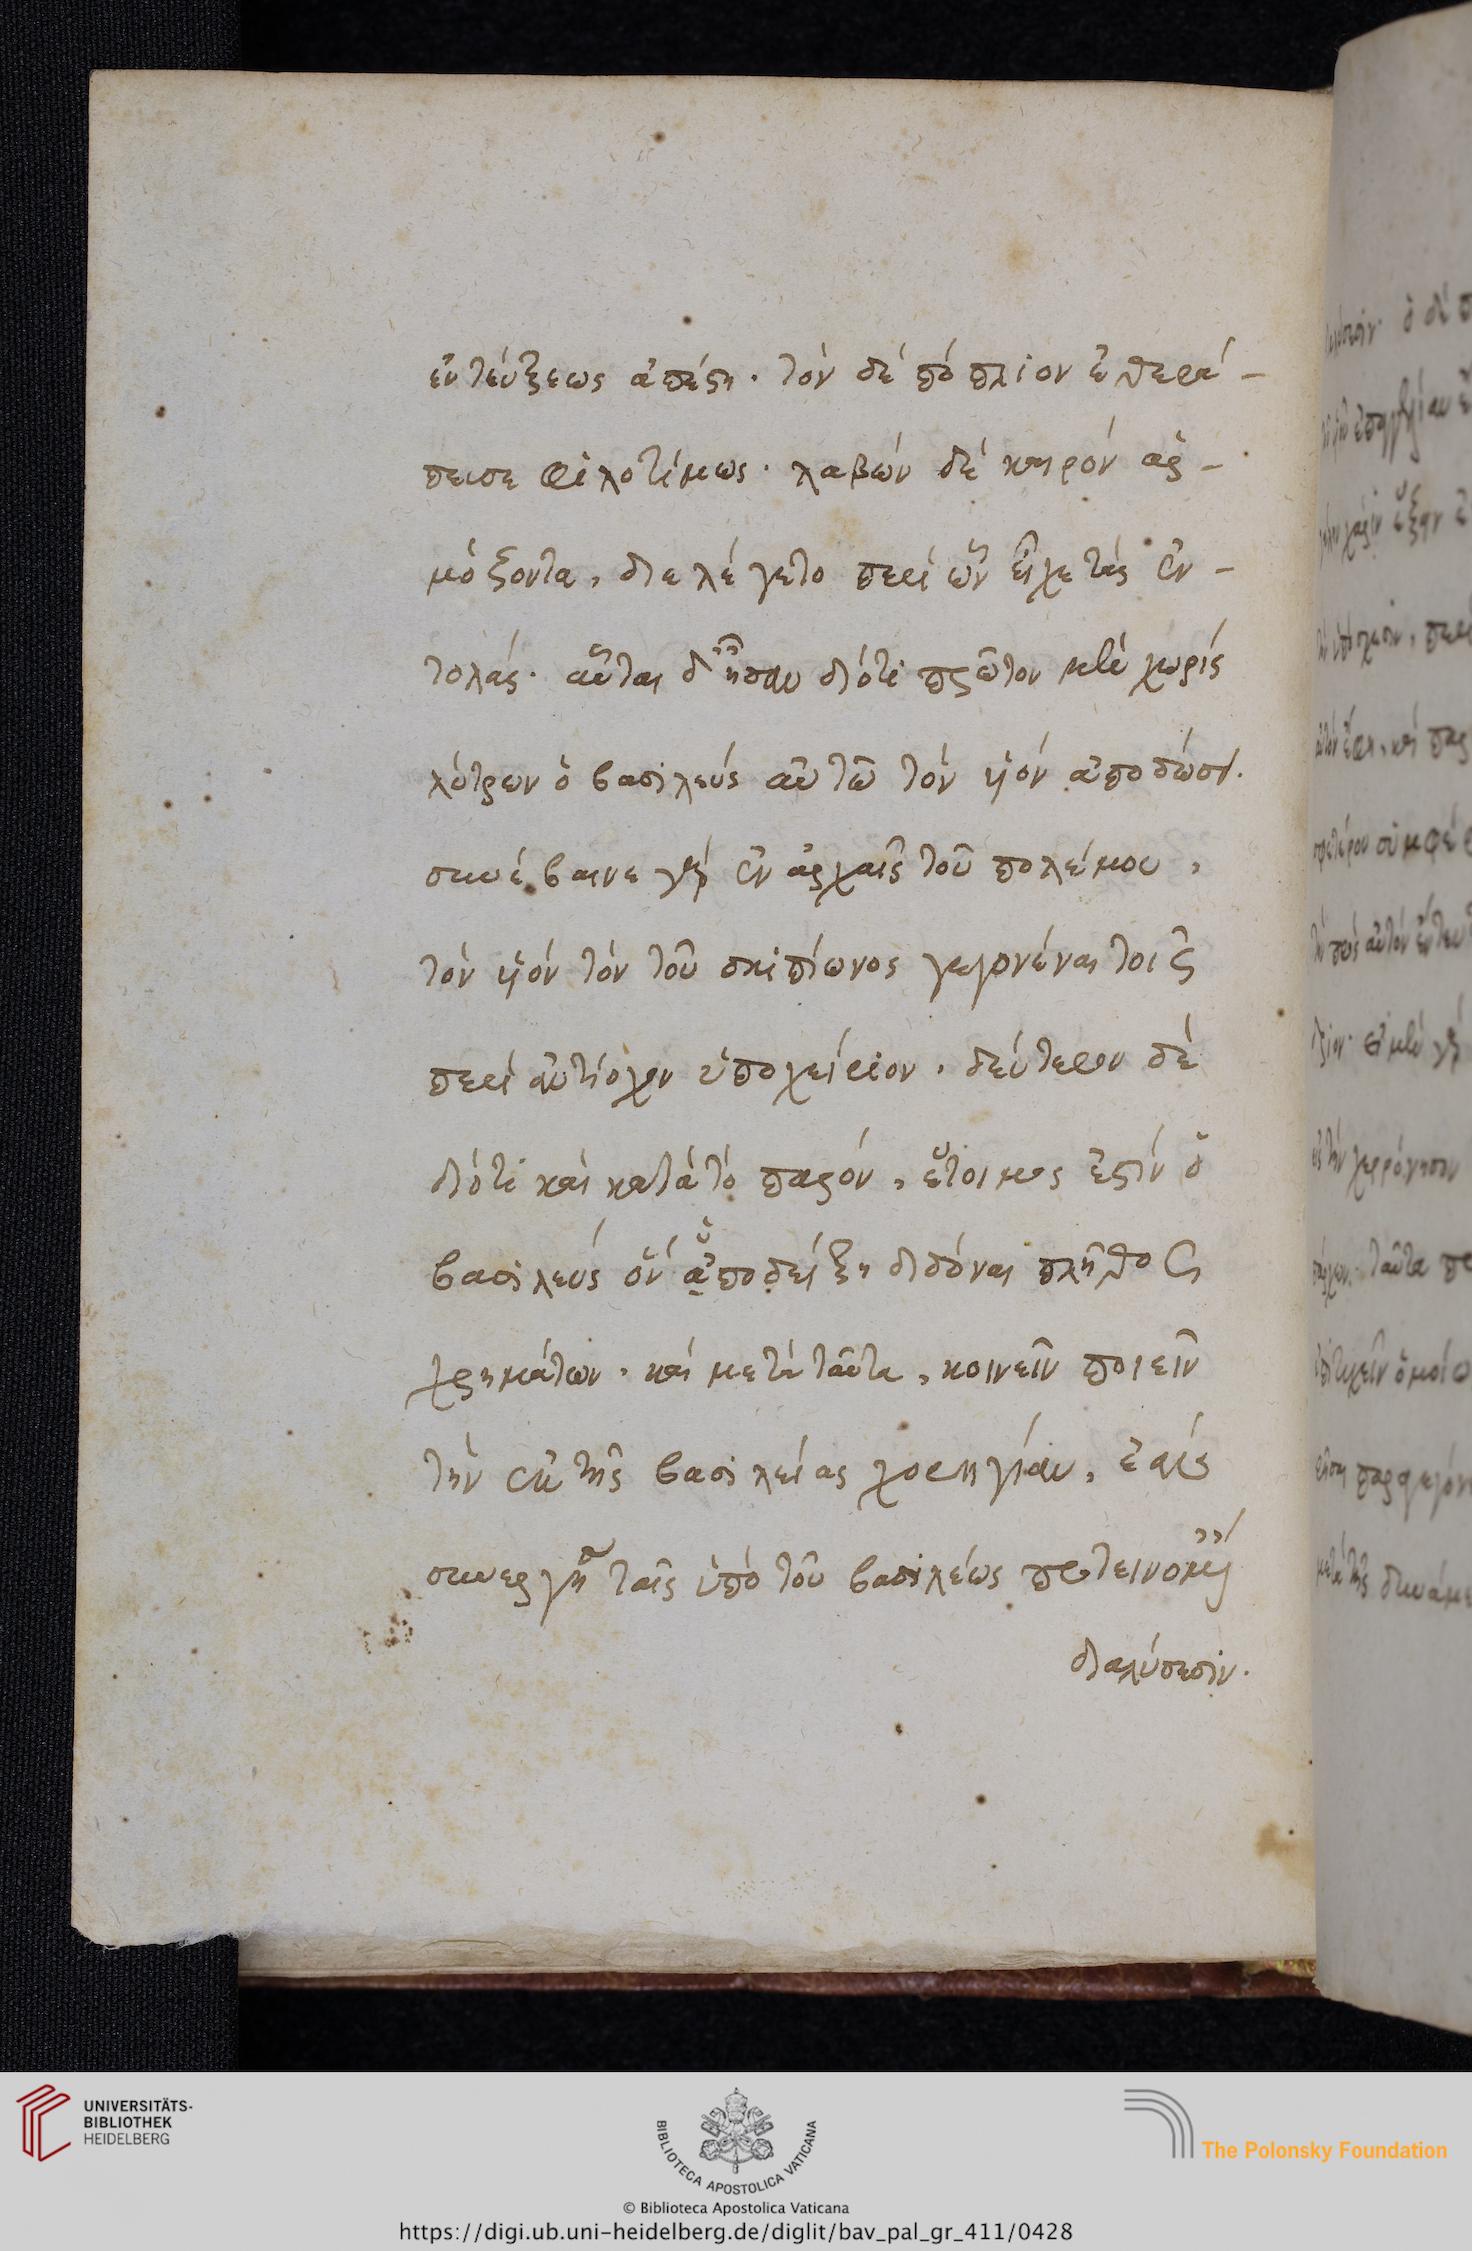 ἐντεύξεως ἀπέστη. τὸν δὲ πόπλιον ἐθερά-
πευσε φιλοτίμως. λαβὼν δὲ καιρὸν ἁρ-
μόζοντα, διελέγετο περὶ ὧν εἶχε τὰς ἐν-
τολάς. αὗται δ' ἦσαν διότι πρῶτον μὲν χωρὶς
λύτρων ὁ βασιλεὺς αὐτῶ τὸν ὑιὸν ἀποδώσει.
συνέβαινε γὰρ ἐν ἀρχαῖς τοῦ πολέμου,
τὸν ὑιὸν τὸν τοῦ σκιπίωνος γεγονέναι τοῖς
περὶ ἀντίοχον ὑποχείριον. δεύτερον δὲ
διότι καὶ κατὰ τὸ παρόν, ἕτοιμος ἐστὶν ὁ
βασιλεὺς ὃν ἀποδείξη διδόναι πλῆθος
χρημάτων. καὶ μετὰ ταῦτα, κοινεῖν ποιεῖν
τὴν ἐκ τῆς βασιλείας χορηγίαν, ἐὰν
συνεργῆ ταῖς ὑπὸ τοῦ βασιλέως προτεινομέναις
διαλύσεσιν.
UNIVERSITÄTS-
BIBLIOTHEK
HEIDELBERG
BIBLIOTECA APOSTOLICA VATICANA
© Biblioteca Apostolica Vaticana
https://digi.ub.uni-heidelberg.de/diglit/bav_pal_gr_411/0428
The Polonsky Foundation